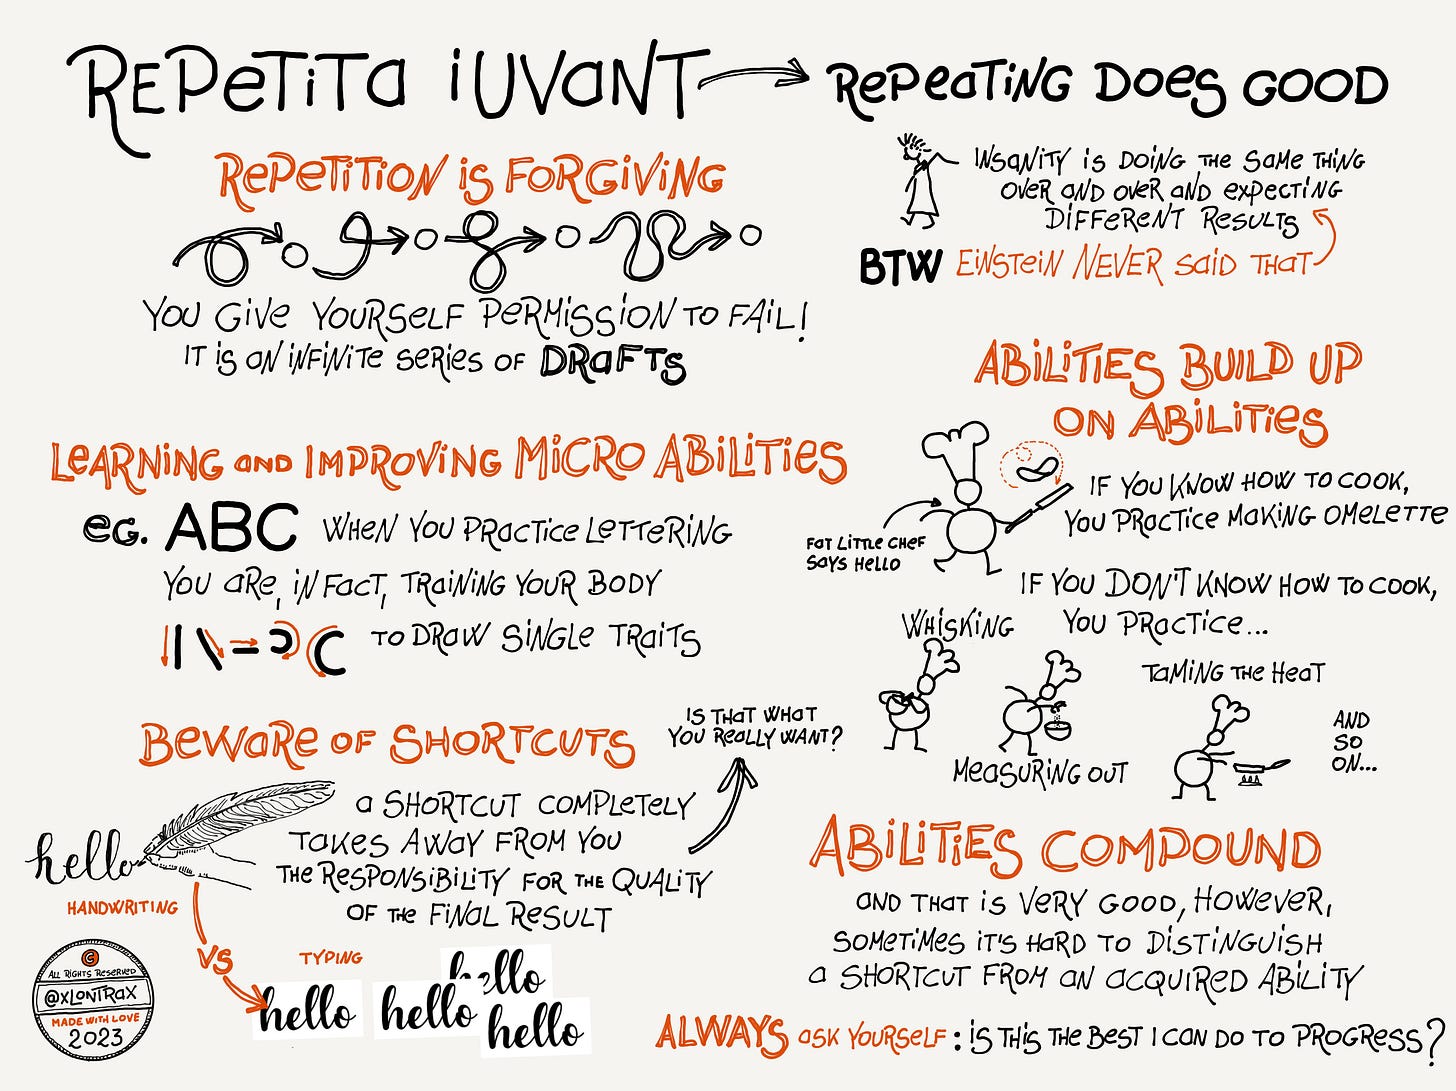 REPETITA IUVANT
REPEATING DOES GOOD
REPETITION IS FORGIVING
YOU GIVE YOURSELF PERMISSION TO FAIL!
IT IS AN INFINITE SERIES OF DRAFTS
INSANITY IS DOING THE SAME THING
OVER AND OVER AND EXPECTING
DIFFERENT RESULTS
BTW EINSTEIN NEVER SAID THAT
LEARNING AND IMPROVING MICRO ABILITIES
EG. ABC WHEN YOU PRACTICE LETTERING
YOU ARE, IN FACT, TRAINING YOUR BODY
TO DRAW SINGLE TRAITS
ABILITIES BUILD UP
ON ABILITIES
IF YOU KNOW HOW TO COOK,
YOU PRACTICE MAKING OMELETTE
FAT LITTLE CHEF
SAYS HELLO
IF YOU DON'T KNOW HOW TO COOK,
YOU PRACTICE...
WHISKING
MEASURING OUT
TAMING THE HEAT
AND
SO
ON...
BEWARE OF SHORTCUTS
A SHORTCUT COMPLETELY
TAKES AWAY FROM YOU
THE RESPONSIBILITY FOR THE QUALITY
OF THE FINAL RESULT
IS THAT WHAT
YOU REALLY WANT?
hello
HANDWRITING
VS
TYPING
hello
hello
hello
hello
ABILITIES COMPOUND
AND THAT IS VERY GOOD, HOWEVER,
SOMETIMES IT'S HARD TO DISTINGUISH
A SHORTCUT FROM AN ACQUIRED ABILITY
ALWAYS ASK YOURSELF: IS THIS THE BEST I CAN DO TO PROGRESS?
©
ALL RIGHTS RESERVED
@XLONTRAX
MADE WITH LOVE
2023